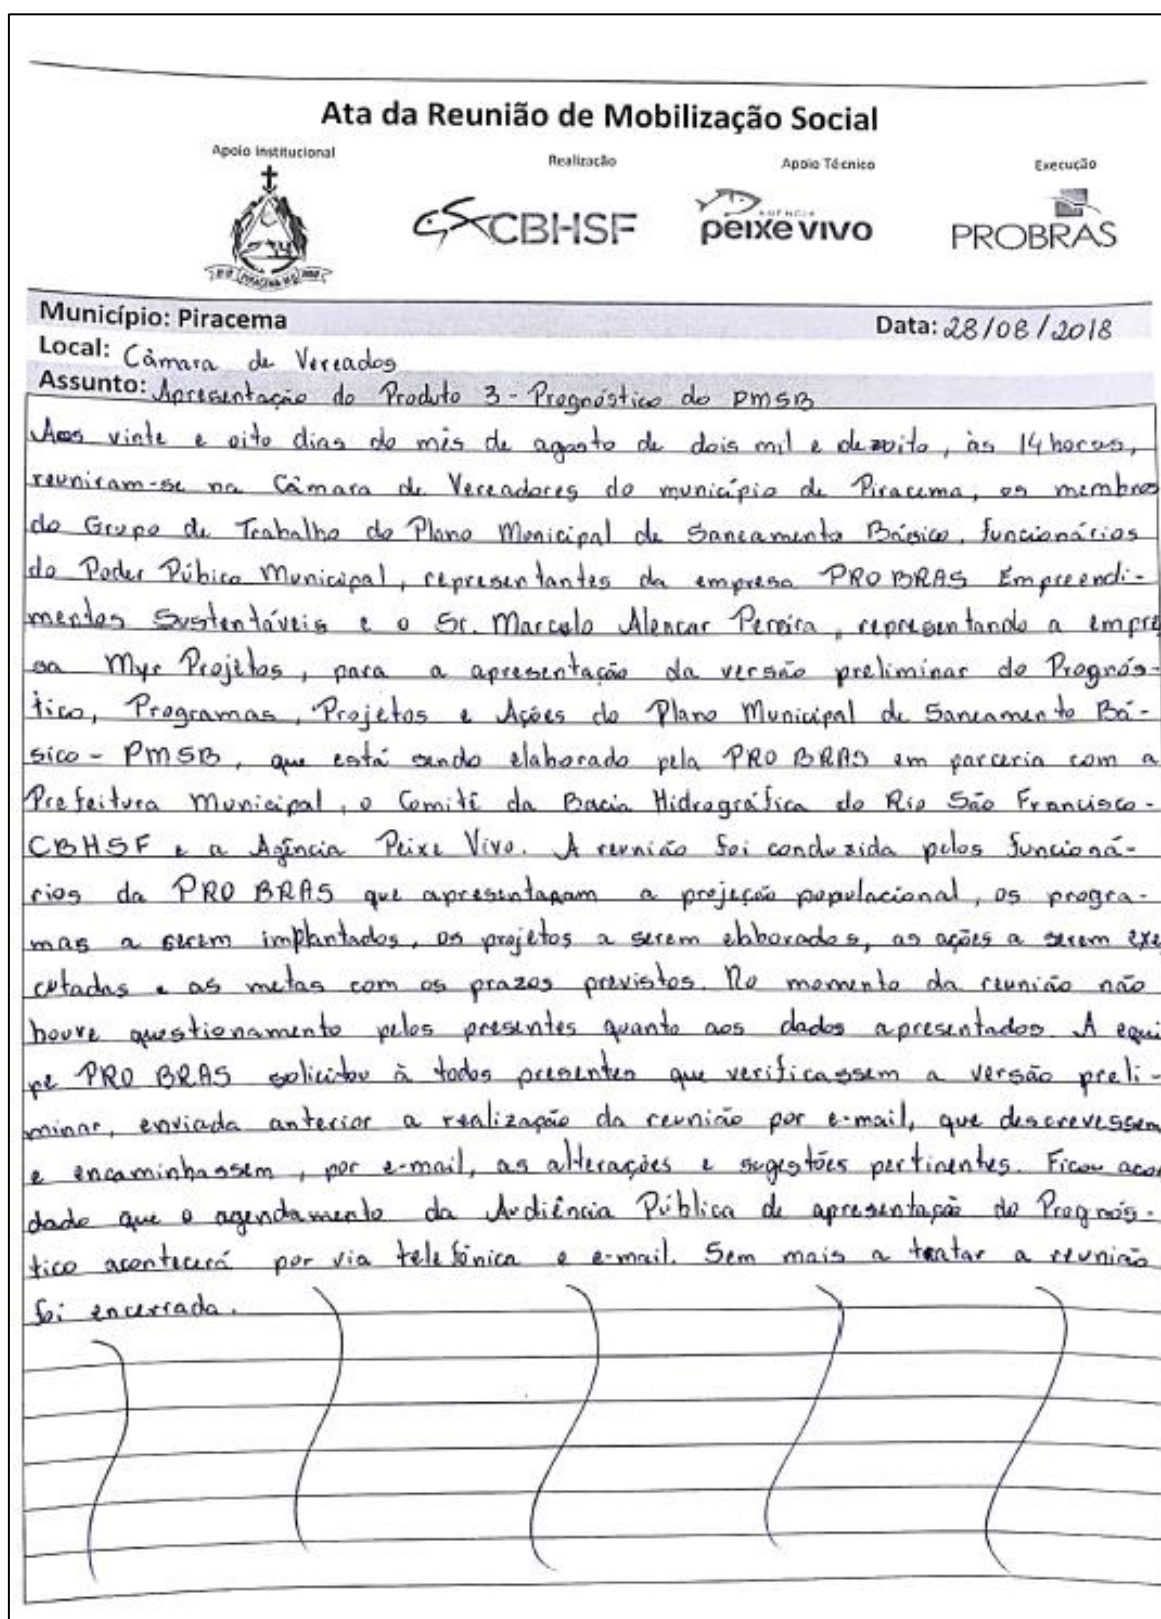 Ata da Reunião de Mobilização Social
Apoio Institucional Realização Apoio Técnico Execução
CBHSF AGÊNCIA peixe vivo PROBRAS
PIRACEMA-MG
Município: Piracema Data: 28/08/2018
Local: Câmara de Vereados
Assunto: Apresentação do Produto 3 - Prognóstico do PMSB
Aos vinte e oito dias do mês de agosto de dois mil e dezoito, às 14 horas,
reuniram-se na Câmara de Vereadores do município de Piracema, os membros
do Grupo de Trabalho do Plano Municipal de Saneamento Básico, funcionários
do Poder Púbico Municipal, representantes da empresa PROBRAS Empreendi-
mentos Sustentáveis e o Sr. Marcelo Alencar Pereira, representando a empre
sa Myr Projetos, para a apresentação da versão preliminar do Prognós-
tico, Programas, Projetos e Ações do Plano Municipal de Saneamento Bá-
sico - PMSB, que está sendo elaborado pela PROBRAS em parceria com a
Prefeitura Municipal, o Comitê da Bacia Hidrográfica do Rio São Francisco-
CBHSF e a Agência Peixe Vivo. A reunião foi conduzida pelos funcioná-
rios da PROBRAS que apresentaram a projeção populacional, os progra-
mas a serem implantados, os projetos a serem elaborados, as ações a serem exe
cutadas e as metas com os prazos previstos. No momento da reunião não
houve questionamento pelos presentes quanto aos dados apresentados. A equi
pe PROBRAS solicitou à todos presentes que verificassem a versão preli-
minar, enviada anterior a realização da reunião por e-mail, que descrevessem
e encaminhassem, por e-mail, as alterações e sugestões pertinentes. Ficou acor
dado que o agendamento da Audiência Pública de apresentação do Prognós-
tico acontecerá por via telefônica e e-mail. Sem mais a tratar a reunião
foi encerrada.